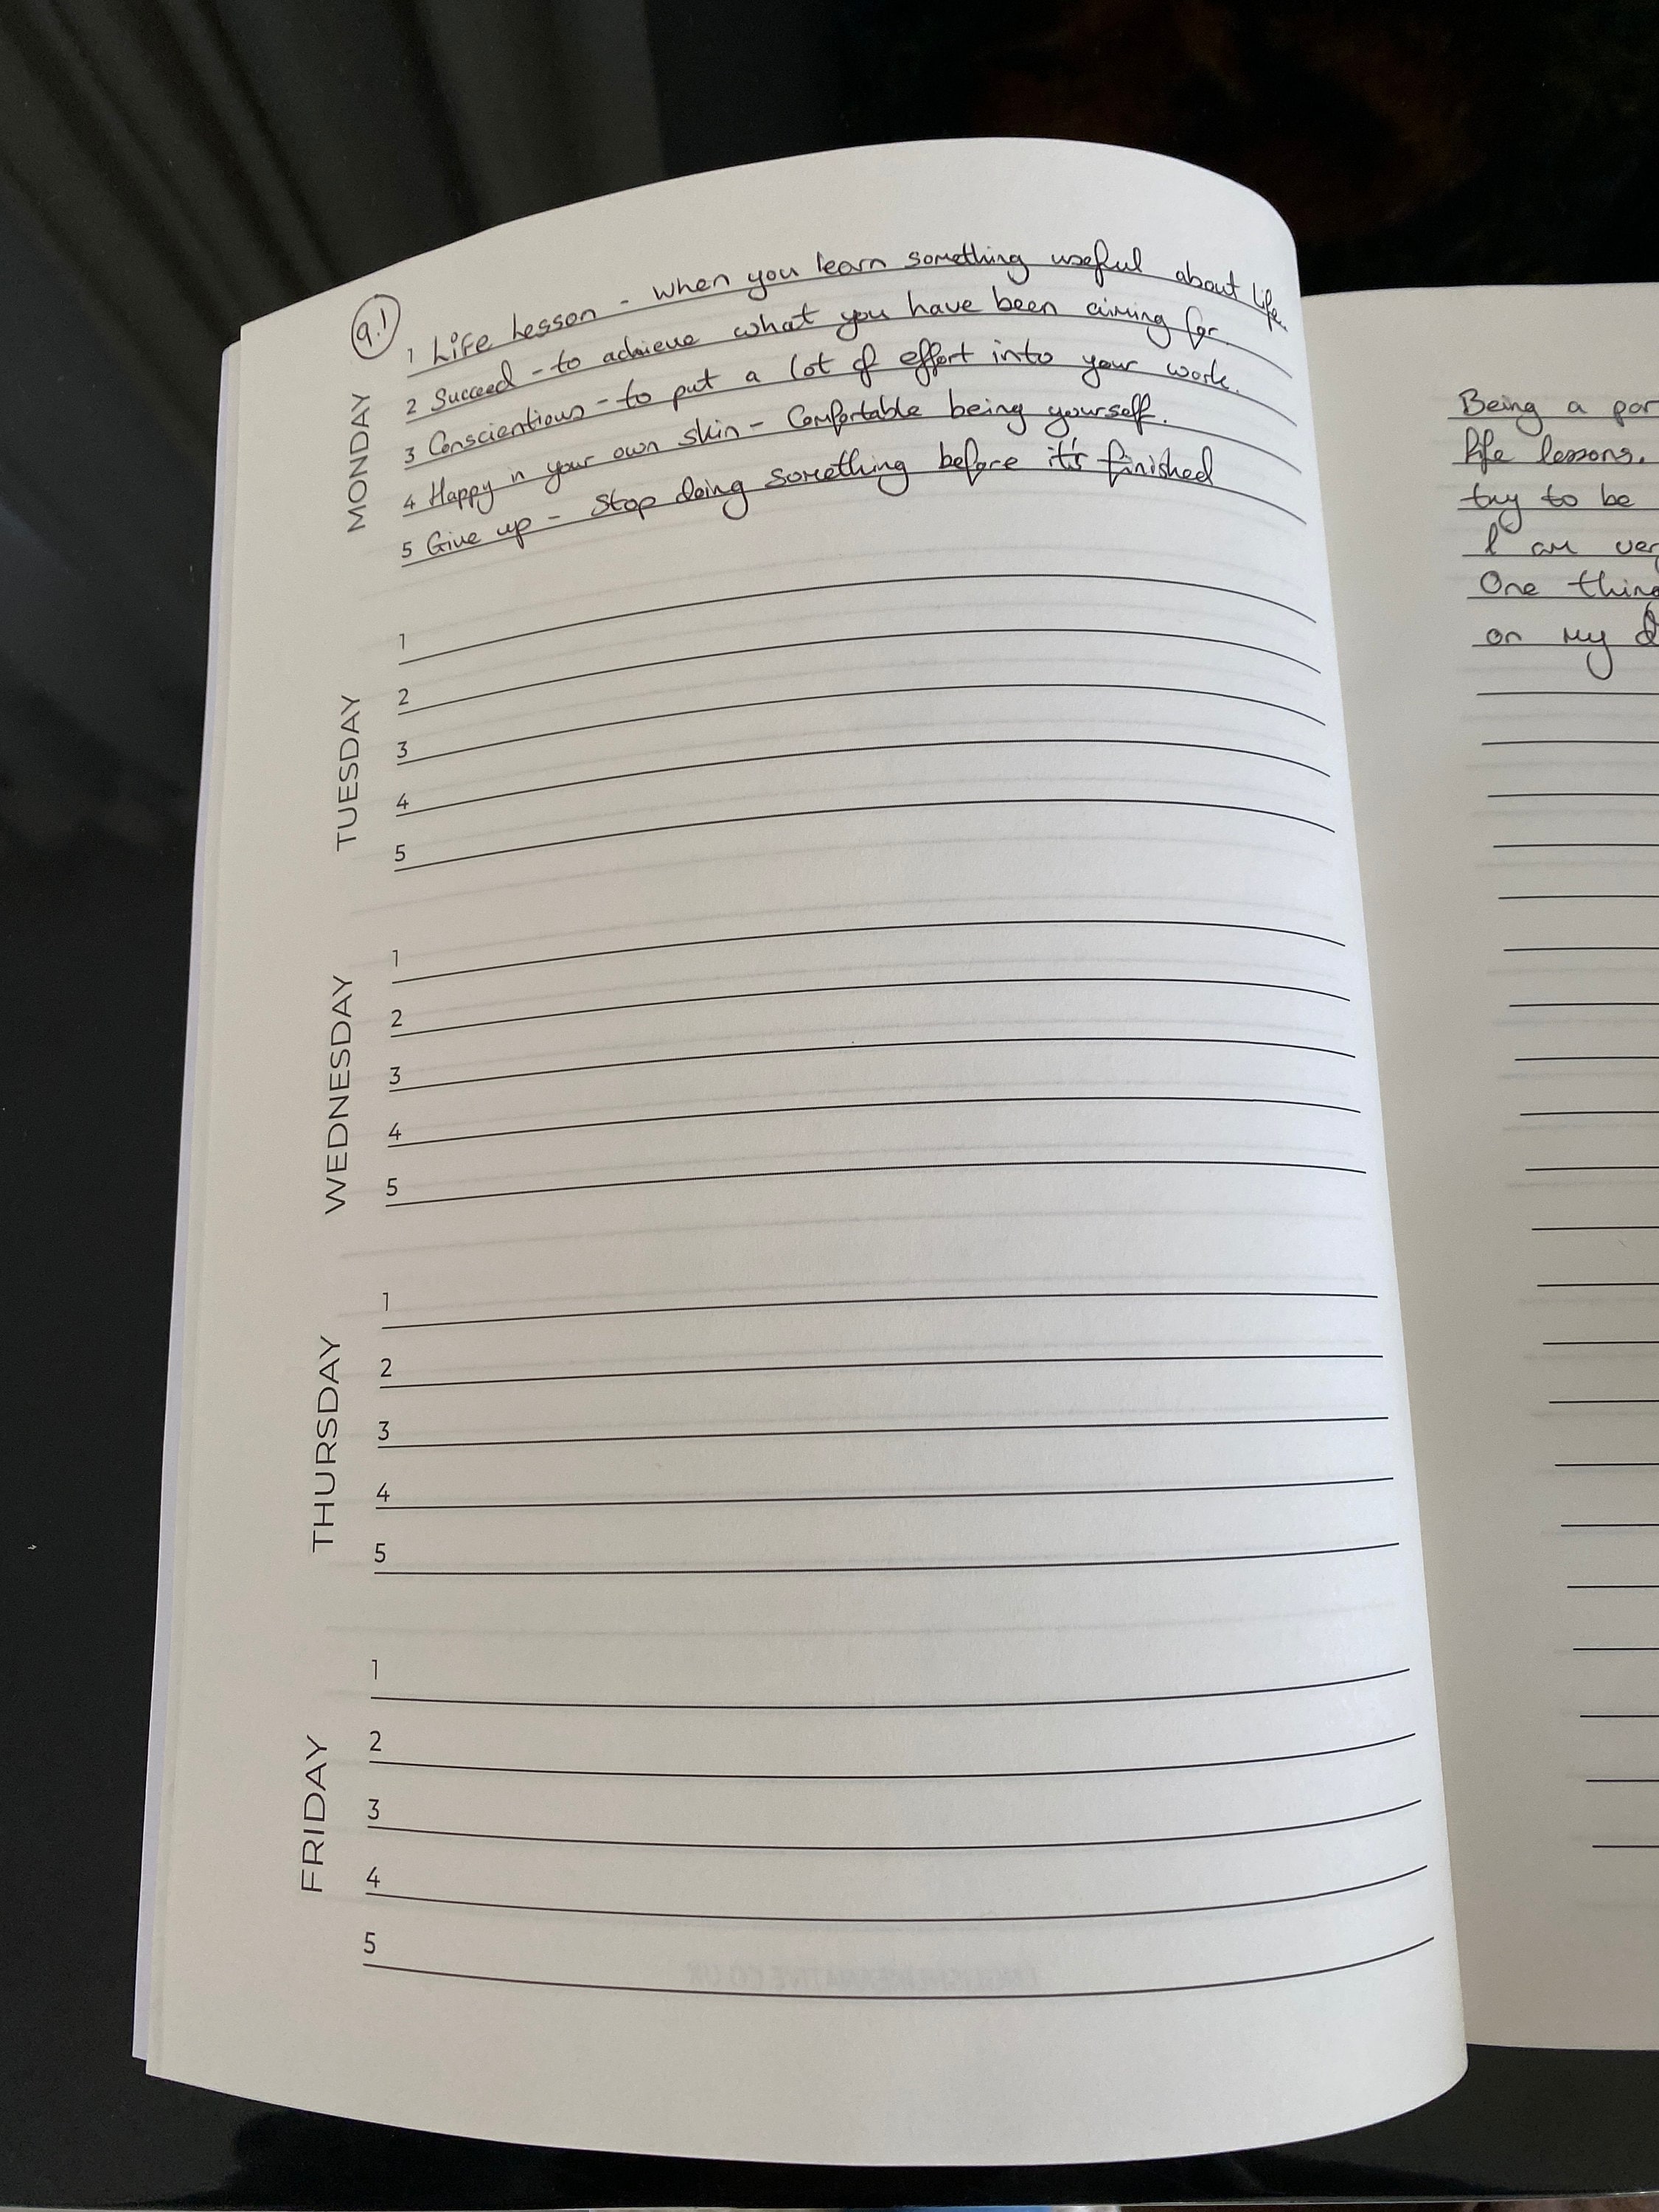 9.1
MONDAY
1 Life Lesson - when you learn something useful about life.
2 Succeed - to achieve what you have been aiming for.
3 Conscientious - to put a lot of effort into your work.
4 Happy in your own skin - Comfortable being yourself.
5 Give up - Stop doing something before it's finished
TUESDAY
1
2
3
4
5
WEDNESDAY
1
2
3
4
5
THURSDAY
1
2
3
4
5
FRIDAY
1
2
3
4
5
Being a par
life lessons.
try to be
I am ver
One thing
on my